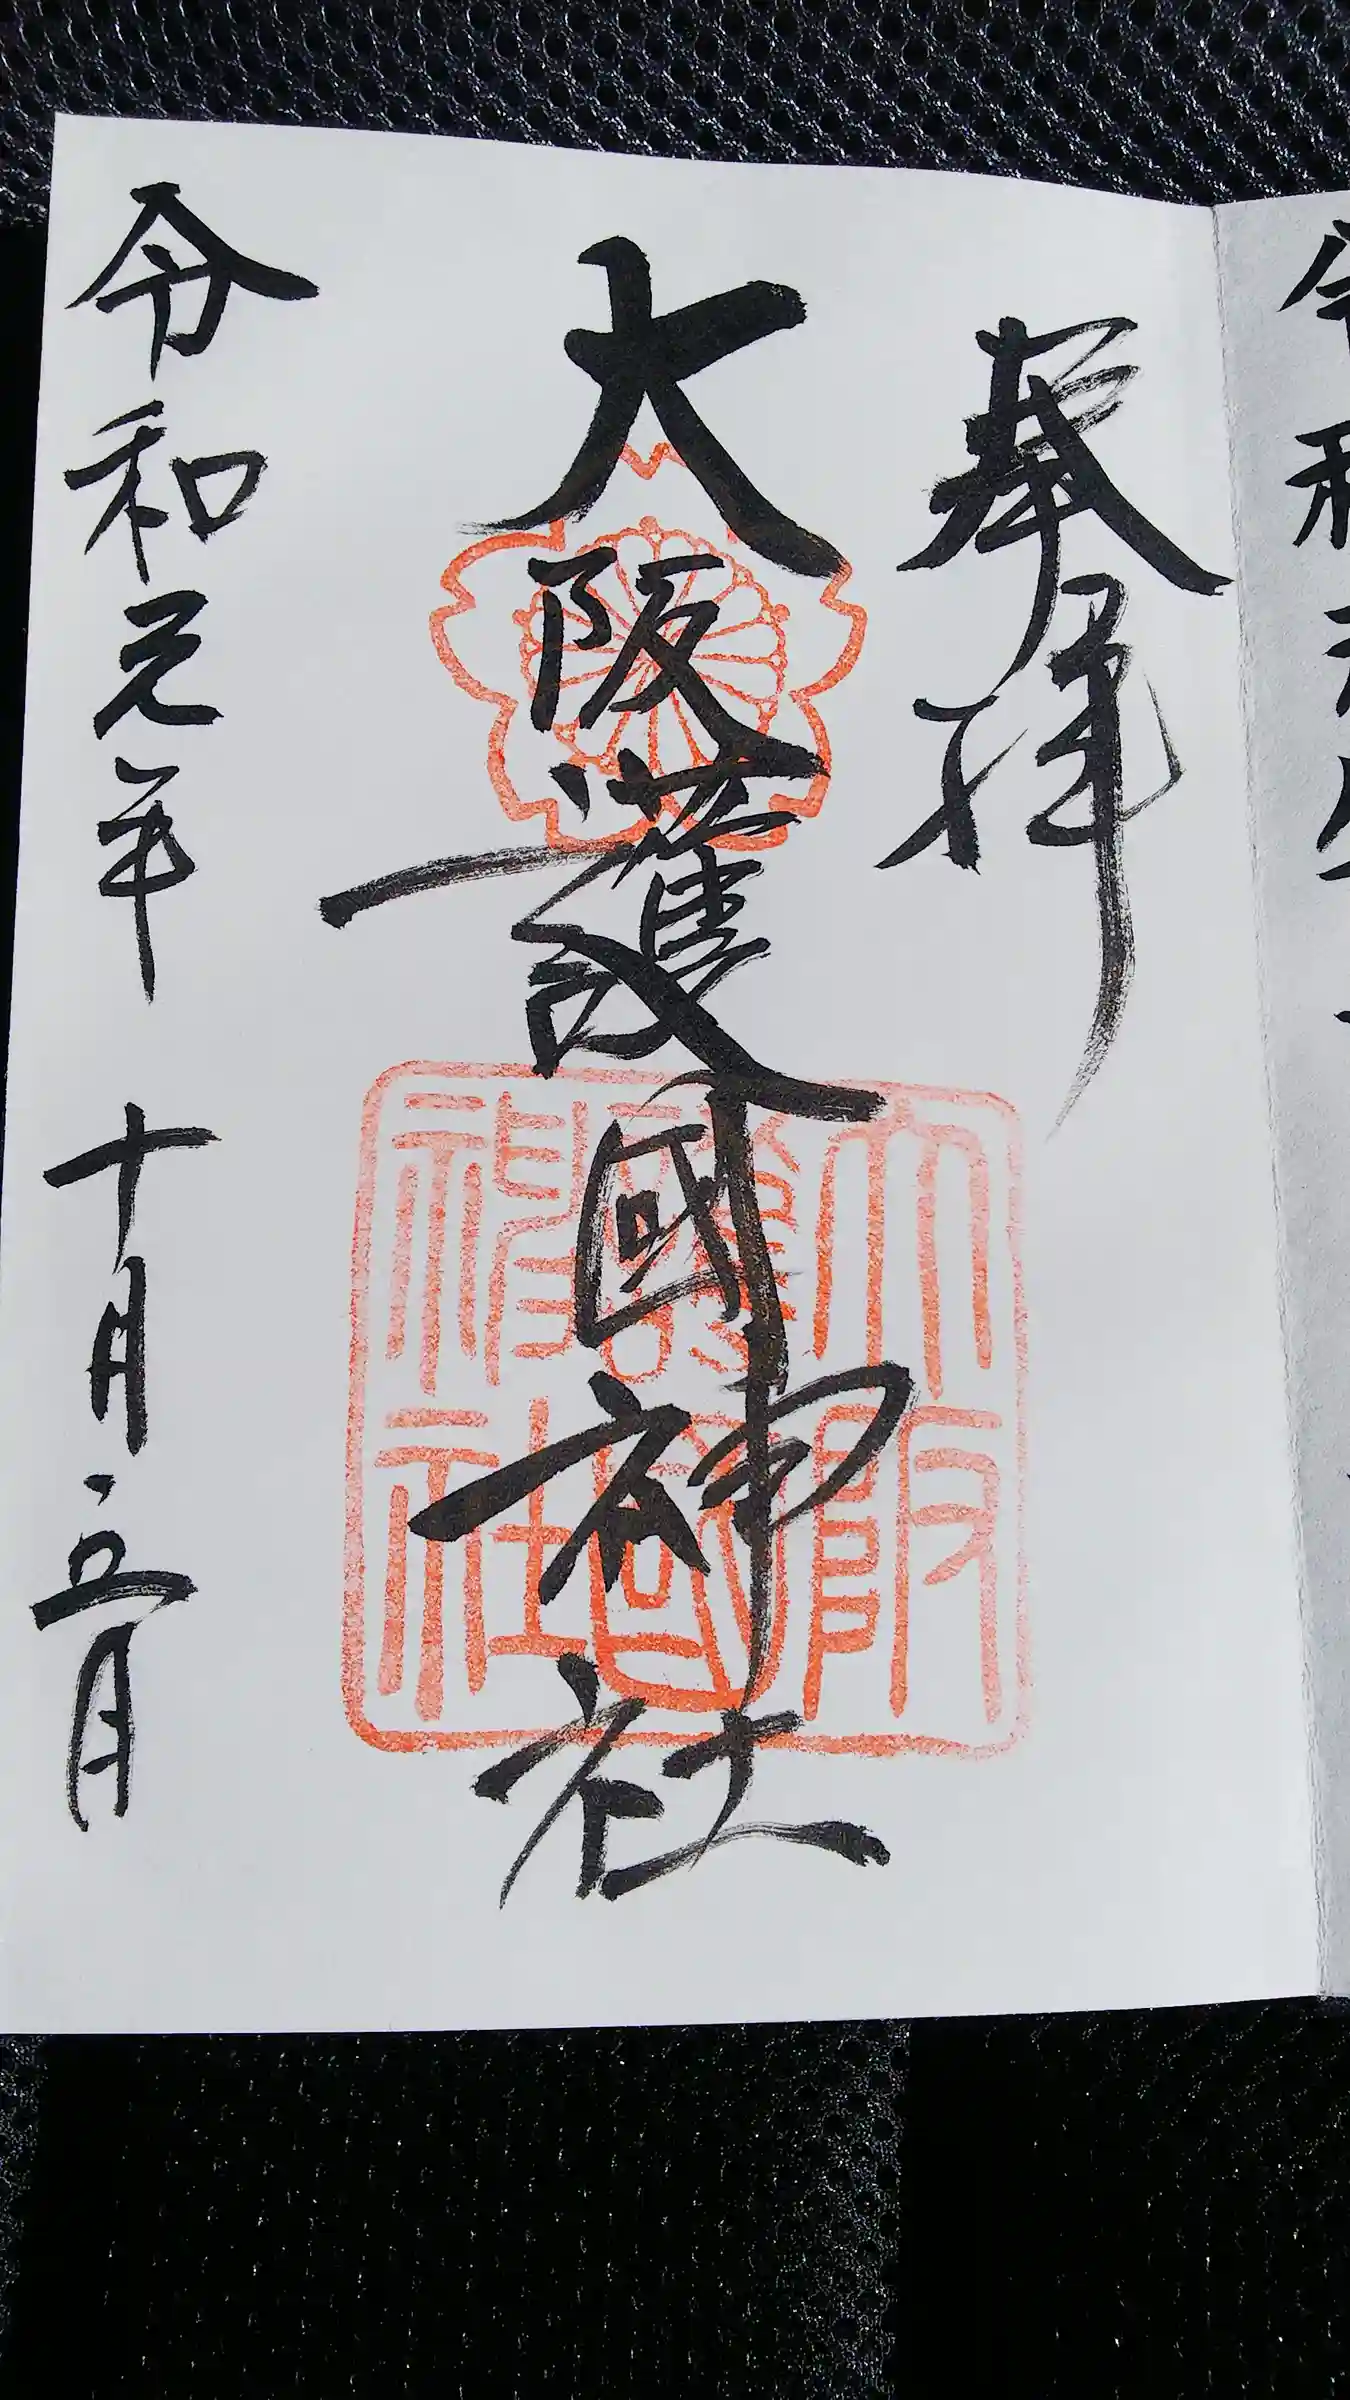 奉拝
大阪護國神社
大阪
護國
神社
令和元年 十月五日
令和元年